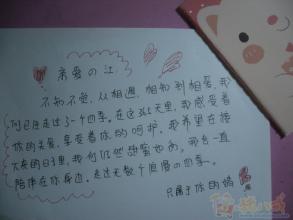 亲爱の江:
不知不觉,从相遇,相知到相爱,我
们已经走过了一个四季。在这365天里,我感受着
你的关爱,享受着你的呵护,我希望在接
下来的日子里,我们仍然甜蜜如初。我会一直
陪伴在你身边,走过无数个浪漫の四季~。
只属于你的